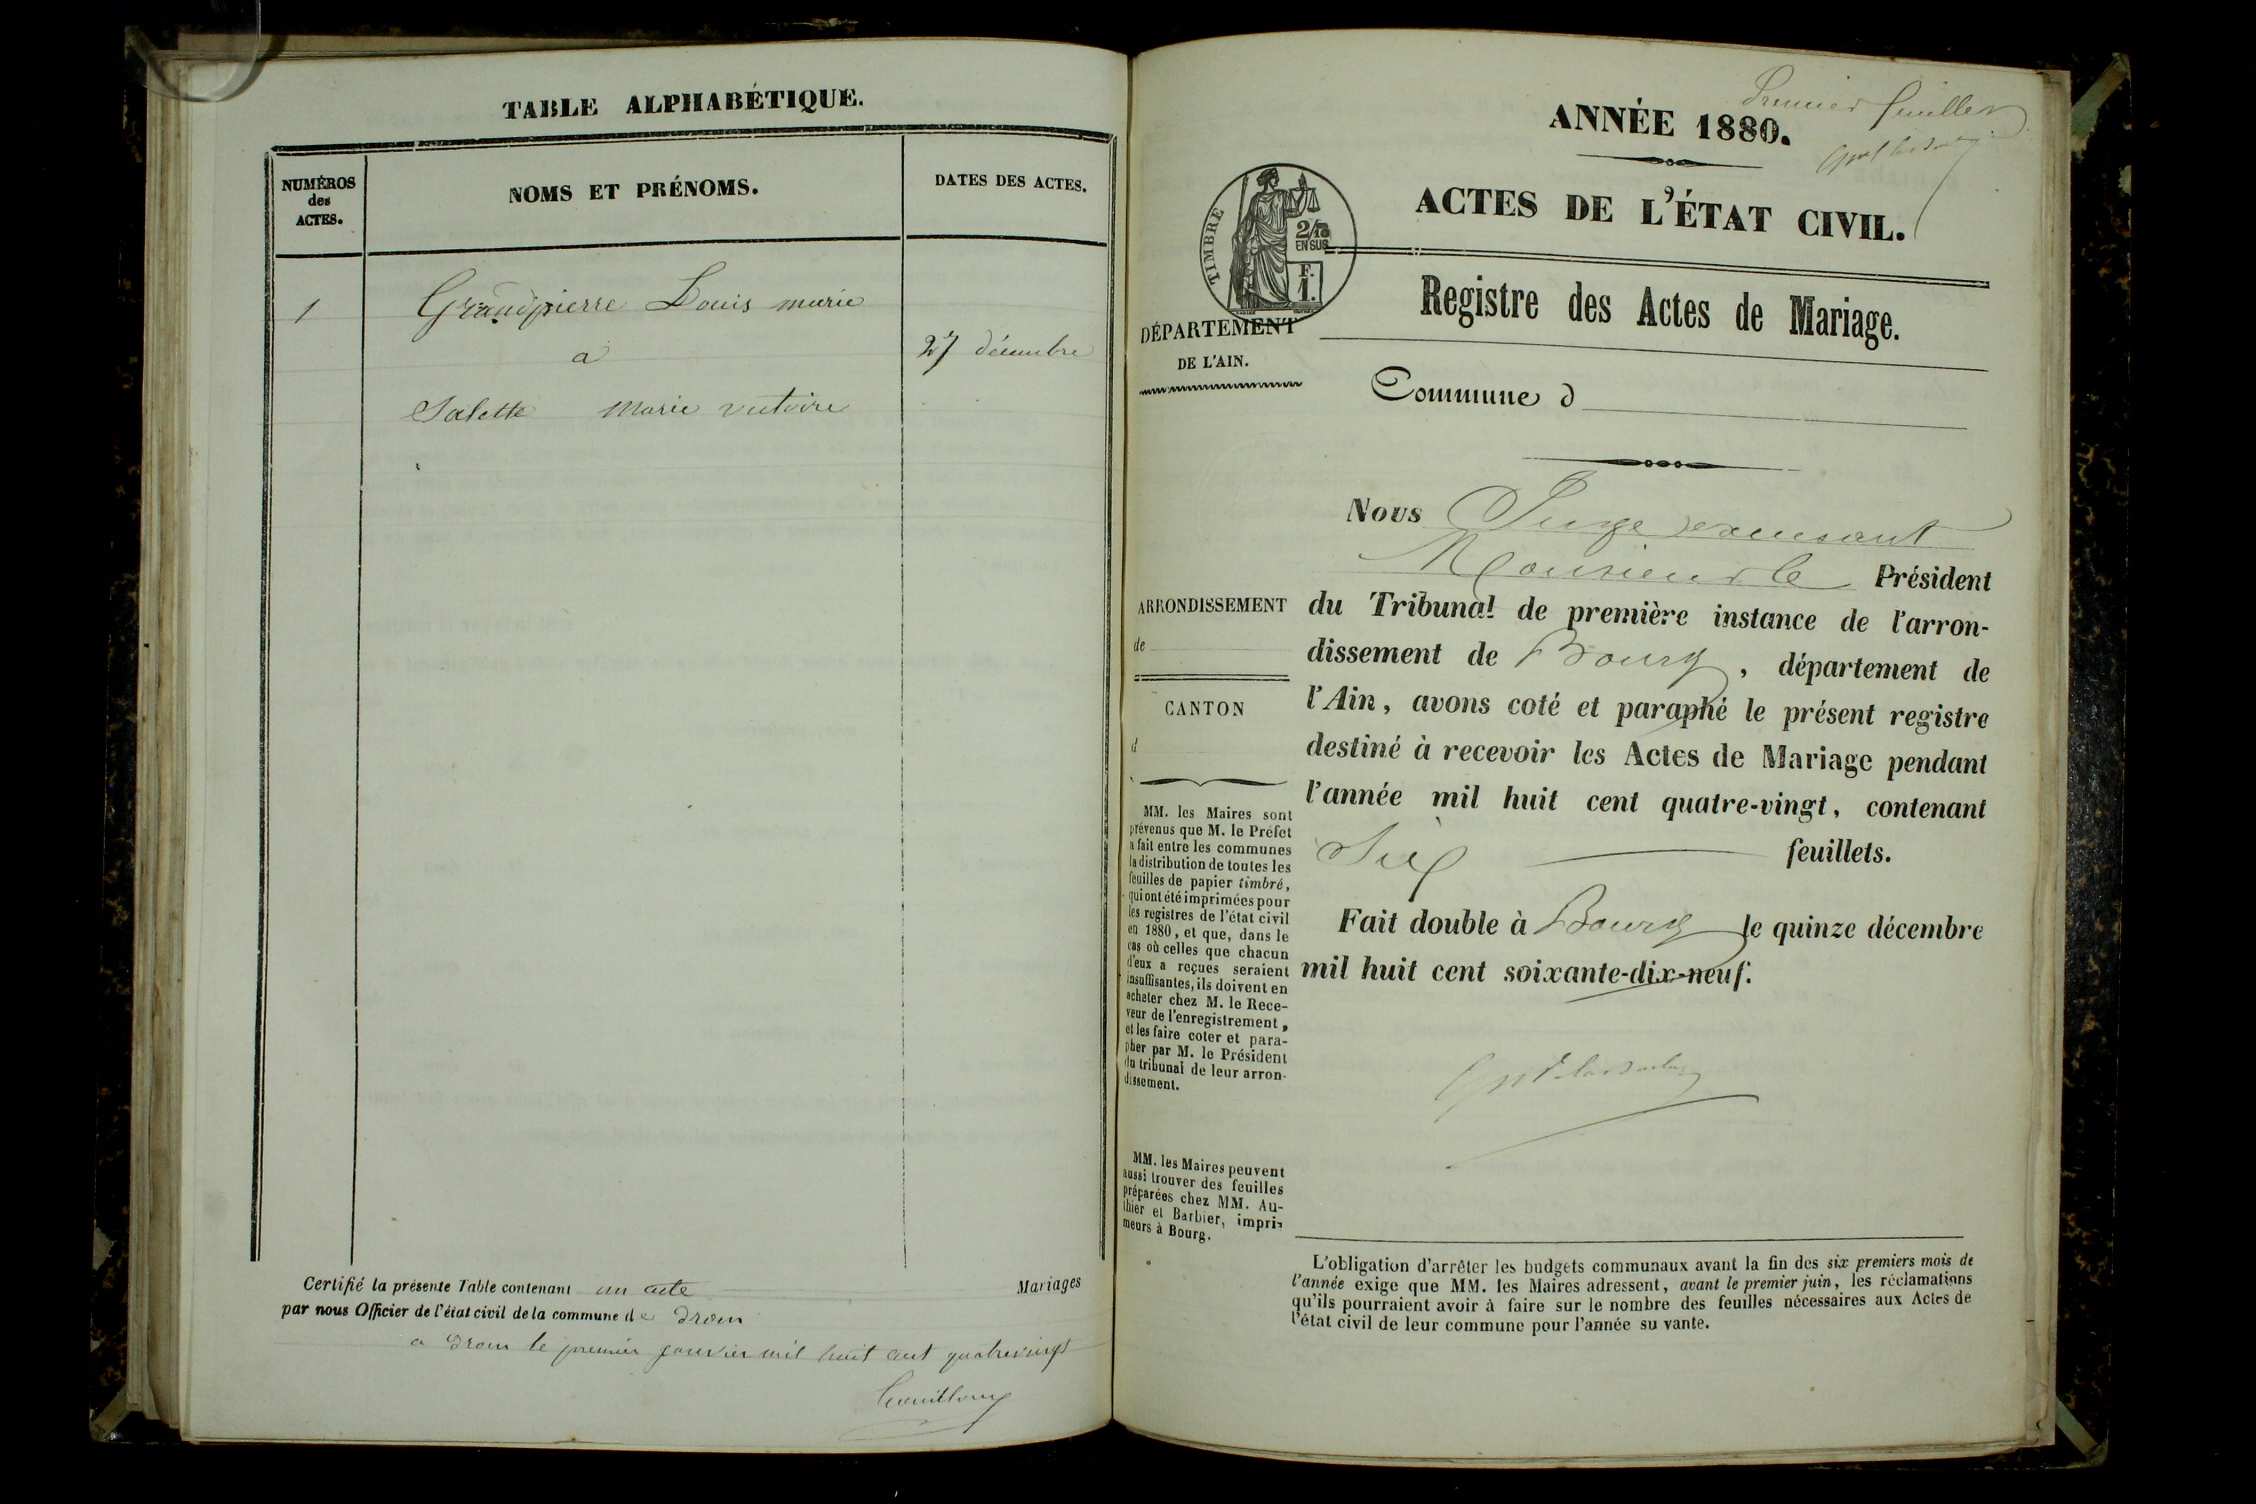 TABLE ALPHABÉTIQUE.
NUMÉROS
des
ACTES.
NOMS ET PRÉNOMS.
DATES DES ACTES.
1
Grandpierre Louis marie
a
27 décembre
Salette Marie victoire
Certifié la présente Table contenant un acte Mariages
par nous Officier de l'état civil de la commune de Drom
a Drom le premier janvier mil huit cent quatrevingt
Premier feuillet
ANNÉE 1880.
ACTES DE L'ÉTAT CIVIL.
TIMBRE
2/10
EN SUS
F.
1.
DÉPARTEMENT
DE L'AIN.
Registre des Actes de Mariage.
Commune d
ARRONDISSEMENT
de
CANTON
d
MM. les Maires sont
prévenus que M. le Préfet
a fait entre les communes
la distribution de toutes les
feuilles de papier timbré,
qui ont été imprimées pour
les registres de l'état civil
en 1880, et que, dans le
cas où celles que chacun
d'eux a reçues seraient
insuffisantes, ils doivent en
acheter chez M. le Rece-
veur de l'enregistrement,
et les faire coter et para-
pher par M. le Président
du tribunal de leur arron-
dissement.
MM. les Maires peuvent
aussi trouver des feuilles
préparées chez MM. Au-
thier et Barbier, impri-
meurs à Bourg.
Nous Juge
Monsieur le Président
du Tribunal de première instance de l'arron-
dissement de Bourg, département de
l'Ain, avons coté et paraphé le présent registre
destiné à recevoir les Actes de Mariage pendant
l'année mil huit cent quatre-vingt, contenant
Six feuillets.
Fait double à Bourg le quinze décembre
mil huit cent soixante-dix-neuf.
L'obligation d'arrêter les budgets communaux avant la fin des six premiers mois de
l'année exige que MM. les Maires adressent, avant le premier juin, les réclamations
qu'ils pourraient avoir à faire sur le nombre des feuilles nécessaires aux Actes de
l'état civil de leur commune pour l'année su vante.